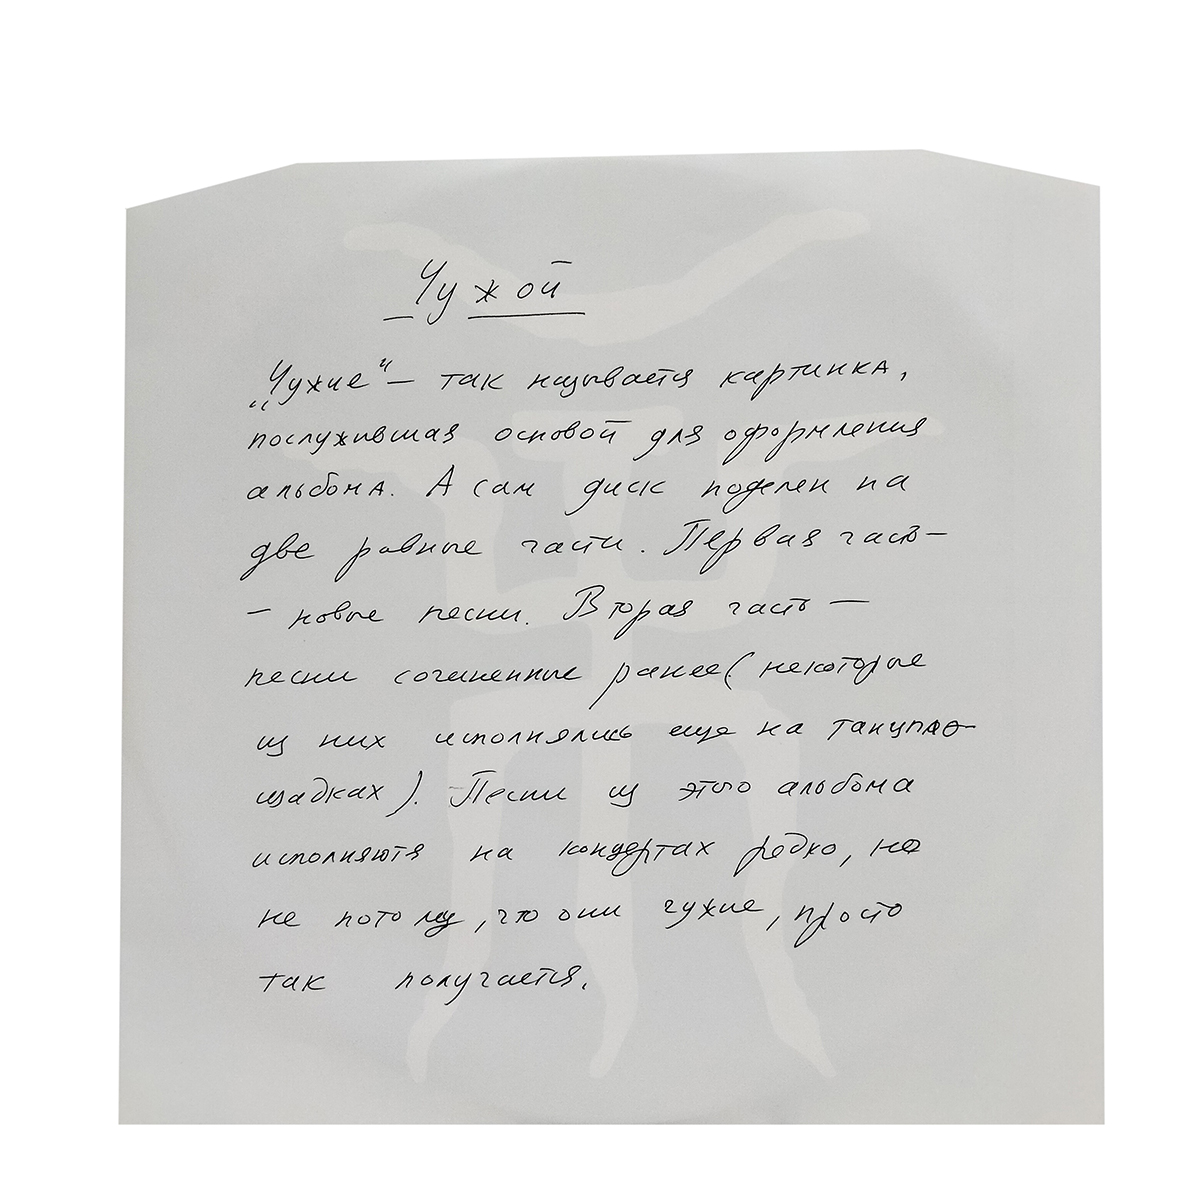 Чужой
„Чужие“ — так называется картинка,
послужившая основой для оформления
альбома. А сам диск поделен на
две равные части. Первая часть —
— новые песни. Вторая часть —
песни сочиненные ранее (некоторые
из них исполнялись еще на танцпло-
щадках). Песни из этого альбома
исполняются на концертах редко, но
не потому, что они чужие, просто
так получается.